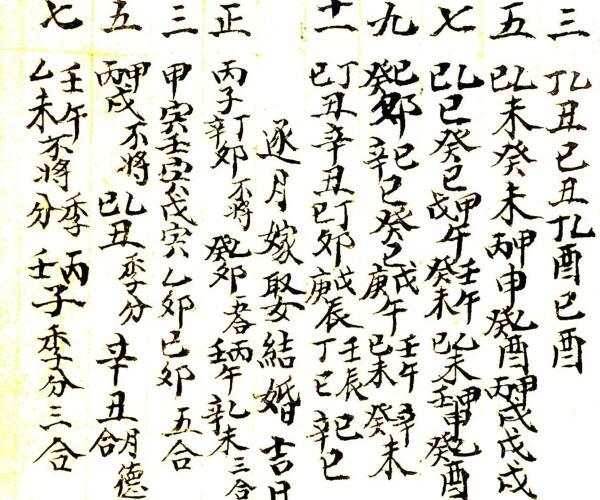 三 丁乙丑己丑丁乙酉己酉
五 己乙未癸未丙甲申癸乙酉丙甲戌戊戌
七 己乙巳癸巳戊甲午壬午癸未己乙未壬甲申癸乙酉
九 癸己卯辛巳己巳癸巳庚戊午己未壬午癸未辛
十一 己丁丑辛丑己丁卯庚戊辰丁巳壬辰辛巳己
逐月嫁娶結婚吉日
正 丙子辛丁卯不将癸乙卯壬丙午辛乙未三合
三 甲寅壬寅戊寅乙卯己卯五合
五 丙甲戌不将己乙丑季分辛丑合月德
七 乙未壬午不将季分壬丙子季分三合